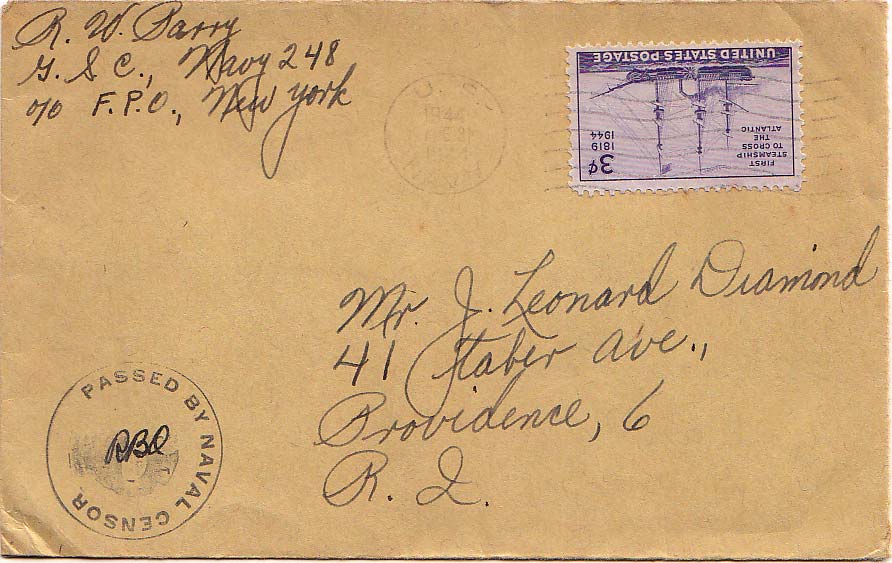 R. W. Parry
G. S. C., Navy 248
c/o F.P.O., New York
1944
UNITED STATES POSTAGE
FIRST
STEAMSHIP
TO CROSS
THE
ATLANTIC
1819
1944
3¢
Mr. J. Leonard Diamond
41 Taber Ave.,
Providence, 6
R. I.
PASSED BY NAVAL CENSOR